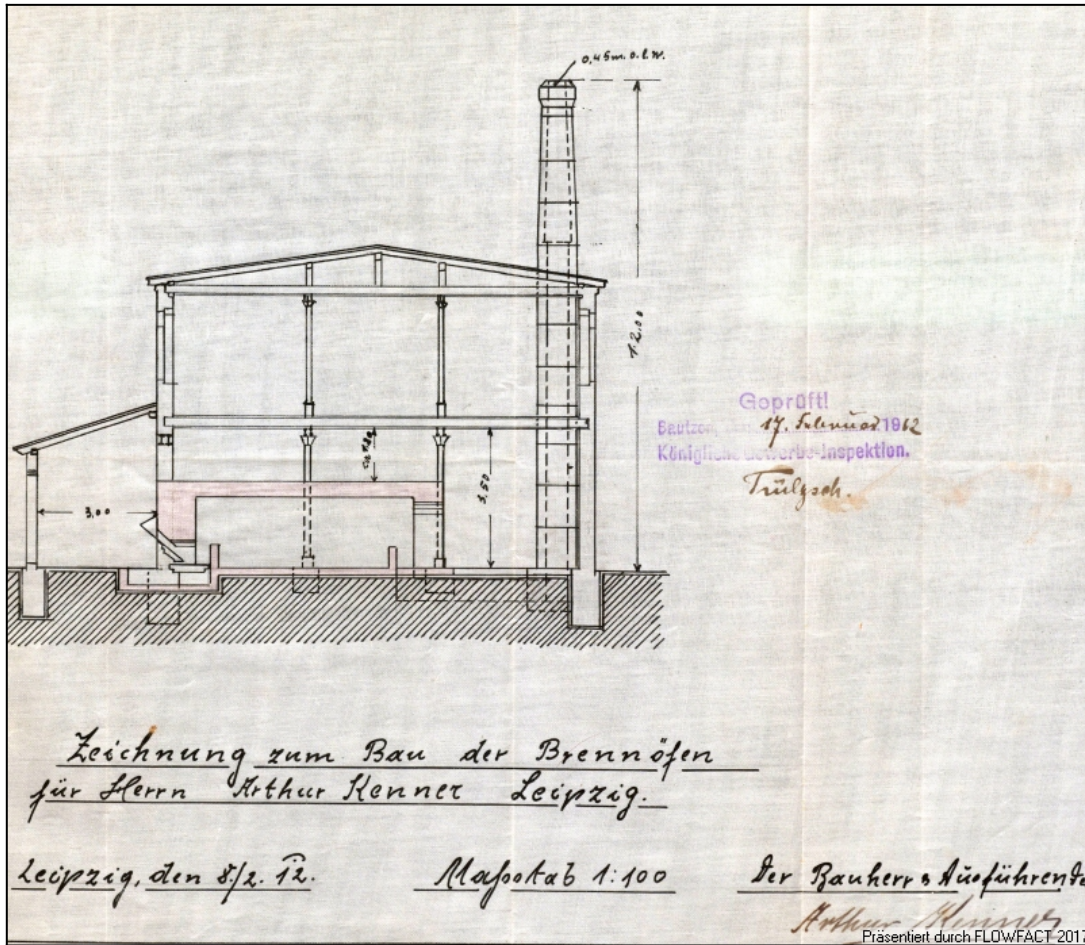 0,45 m. o. l. W.
12,00
Geprüft!
Bautzen, 17. Februar 1912
Königliche Gewerbe-Inspektion.
3,50
3,00
Zeichnung zum Bau der Brennöfen
für Herrn Arthur Kenner Leipzig.
Leipzig, den 8/2. 12.
Maßstab 1:100
Der Bauherr & Ausführende
Arthur Kenner
Präsentiert durch FLOWFACT 2017